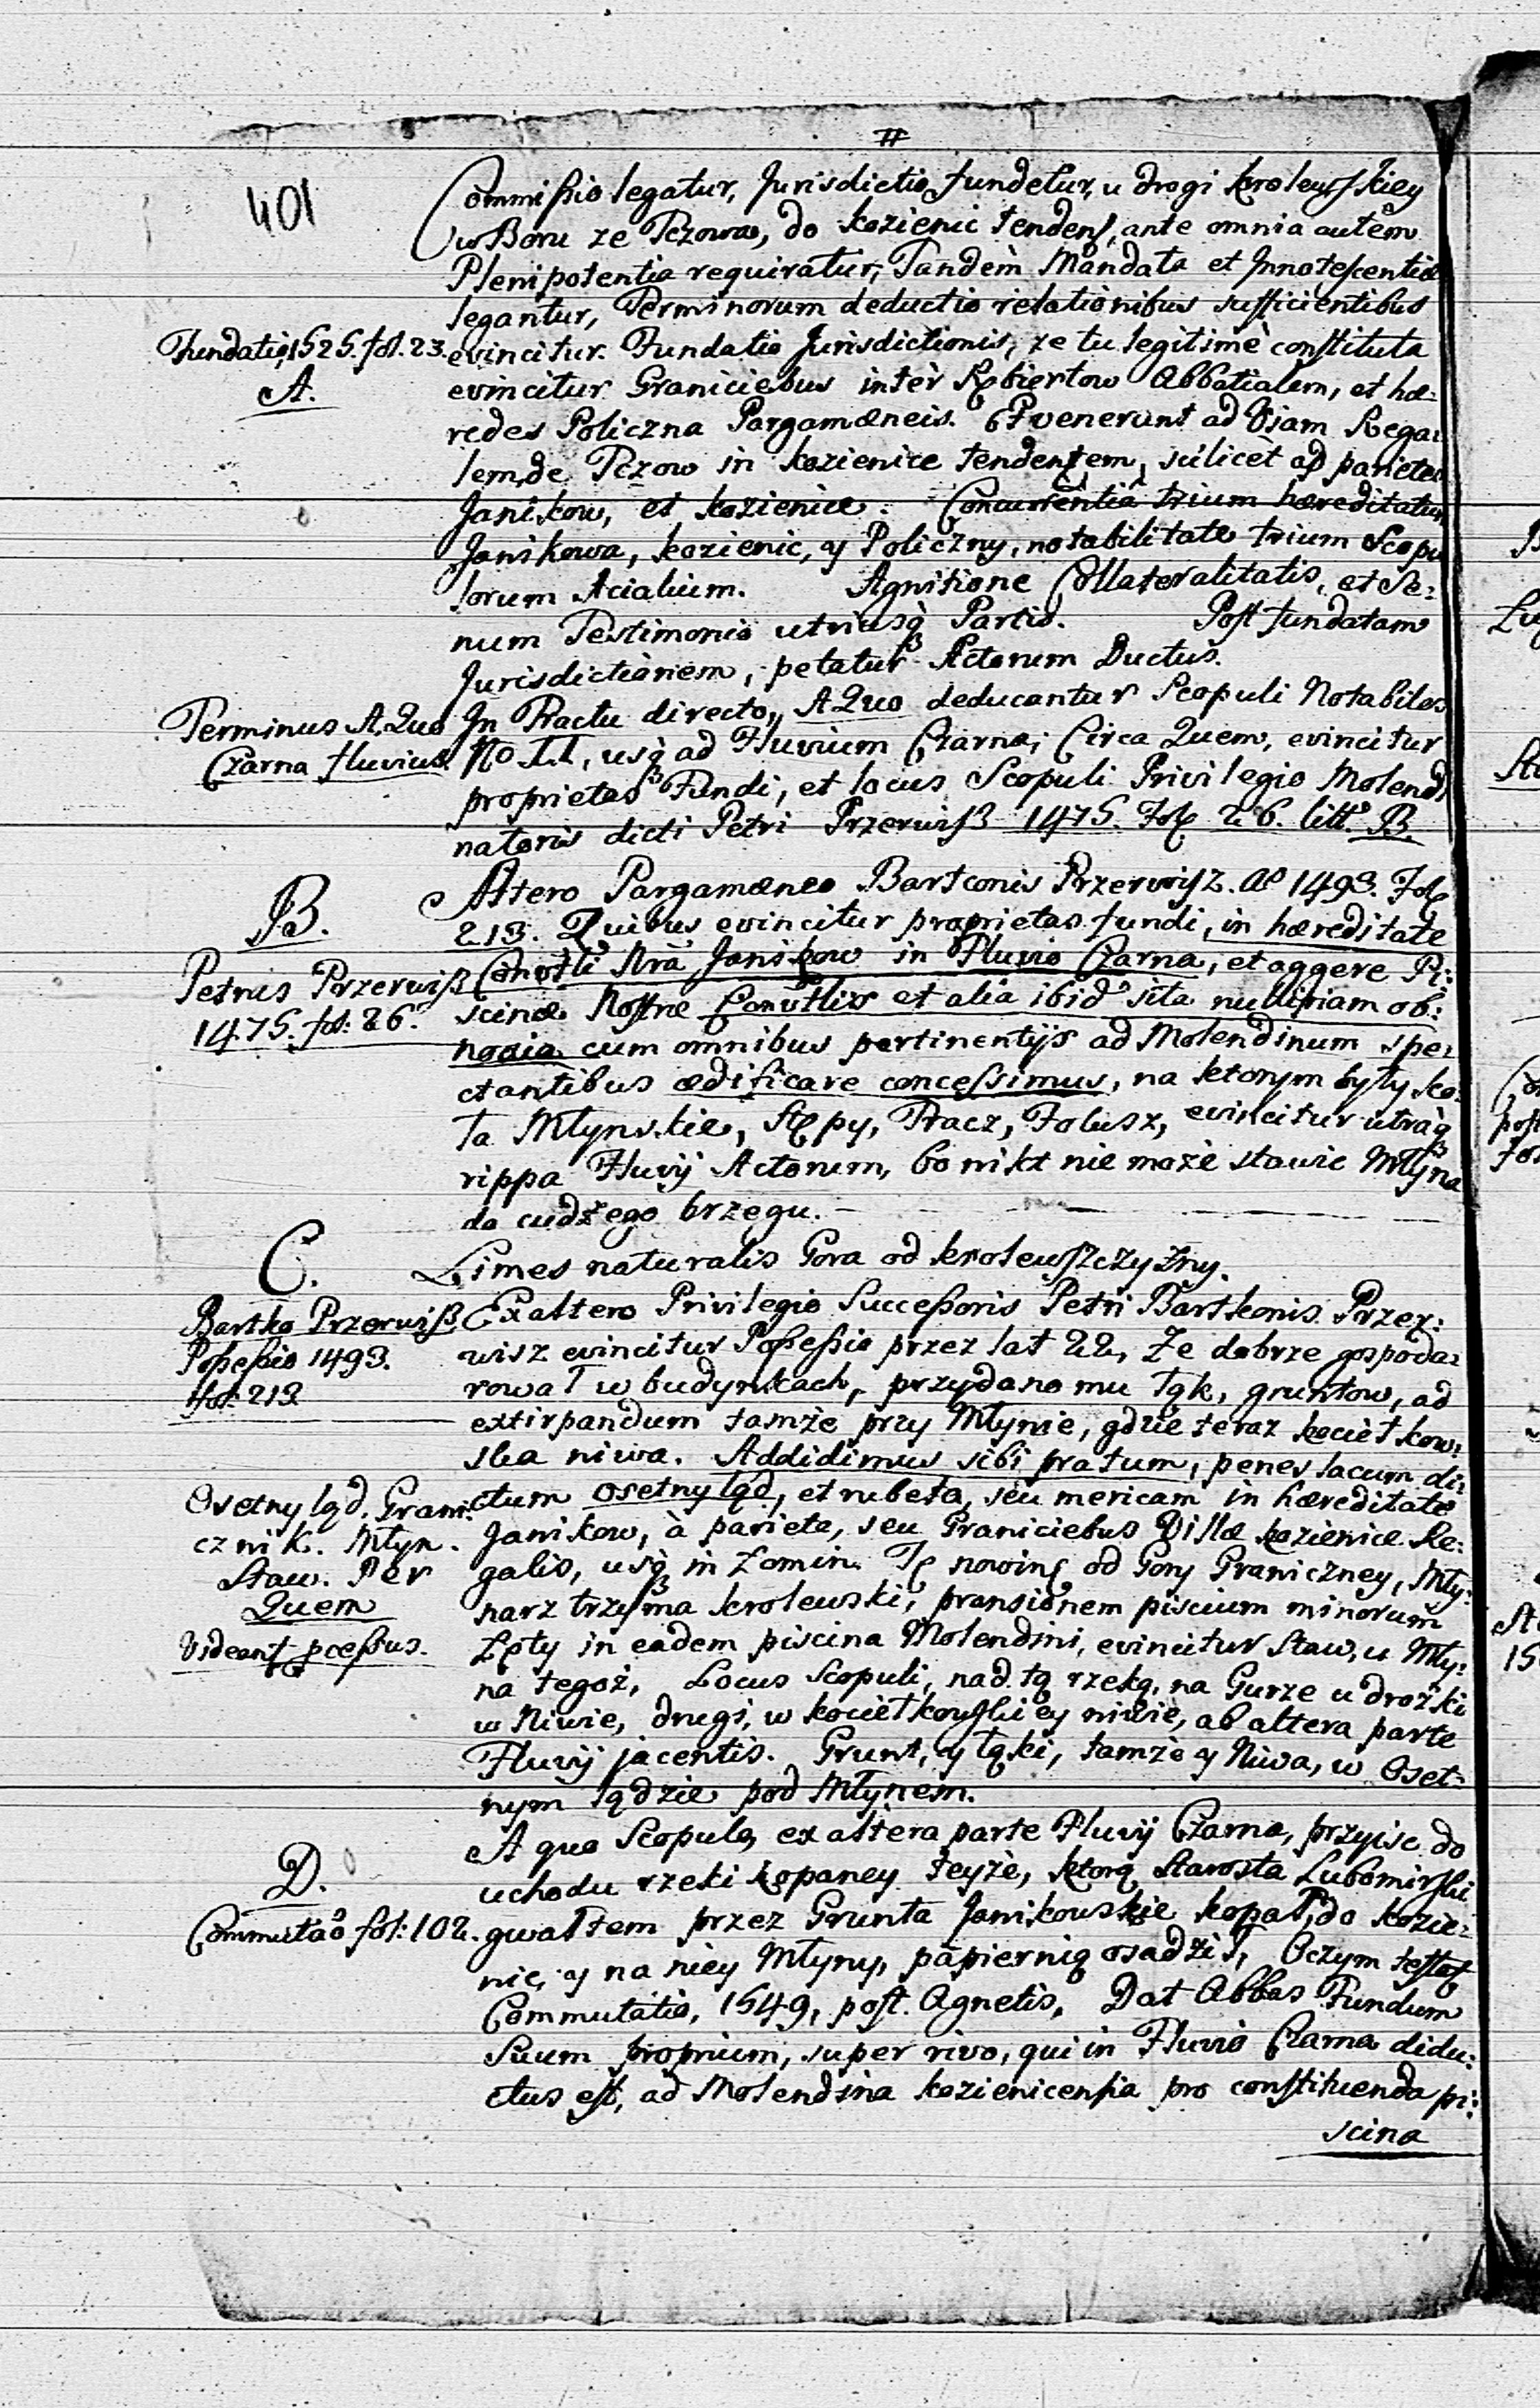 #
401
Commissio legatur, Jurisdictio fundetur, u drogi krolewskiey
w Boru ze Pczowa, do kozienic tendens, ante omnia autem
Plenipotentia requiratur, Tandem Mandata et Innotescentiæ
legantur, Terminorum deductio relationibus sufficientibus
Fundatio, 1525. fol. 23.
A.
evincitur. Fundatio Jurisdictionis, ze tu legitimè constituta
evincitur Graniciebus inter Abbatialem, et hæ-
redes Policzna Pargamæneis. Et venerunt ad Viam Rega:
lem, de Pczow in kozienice tendentem, scilicèt ad parietes
Janikow, et kozienice. Concurrentia trium hæreditatum
Janikowa, kozienic, y Policzny, notabilitate trium Scopu
lorum Acialium. Agnitione Collateralitatis, et Se:
num Testimonio utriusq Partis. Post fundatam
Jurisdictionem, petatur Actorum Ductus.
Terminus A, Quo
Czarna fluvius
In Tractu directo, A Quo deducantur Scopuli Notabiles
No 11, usq ad Fluvium Czarna; Circa Quem, evincitur
proprietas Fundi, et locus Scopuli Privilegio Molendi
natoris dicti Petri Przerwiß 1475. Fol 26. litt. B.
B.
Petrus Przerwiß
1475. fol: 26.
Altero Pargamæneo Bartconis Przerwisz. Ao 1493. Fol
213. Quibus evincitur proprietas fundi, in hæreditate
Convtli Nrã Janikow in Fluvio Czarna, et aggere Pi:
scinæ Nostræ Convtlis et alia ibid sita nulli viam ob:
noxia cum omnibus pertinentijs ad Molendinum spe:
ctantibus ædificare concessimus, na ktorym były ko:
ła Młynskie, Stępy, Tracz, Folusz, evincitur utraq
rippa Fluvij Actorum, bo nikt nie może stawic Młyna
do cudzego brzegu.
C.
Limes naturalis Gora od krolewszczyzny.
Bartko Przerwiß
Possessio 1493.
fol: 213
Ex altero Privilegio Successoris Petri Bartkonis Przer:
wisz evincitur Possessio przez lat 22, Ze dobrze gospoda:
rował w budynkach, przydano mu łąk, gruntow, ad
extirpandum tamże przy Młynie, gdzie teraz kociełkow:
ska niwa. Addidimus sibi pratum, penes lacum di:
Osetny ląd. Grani:
cznik. Młyn.
Staw. Per
Quem
Videant pcessus.
ctum osetny ląd, et rubeta, seu mericam in hæreditate
Janikow, à pariete, seu Graniciebus Villæ kozienice Re:
galis, usq in Łomin. Tę nowinę od Gory Graniczney, Mły:
narz trzyma krolewski, pransionem piscium minorum
Zęty in eadem piscina Molendini, evincitur Staw, u Mły:
na tegoż, Locus Scopuli, nad tą rzeką, na Gurze u drożki
w Niwie, drugi, w kociełkowskiey niwie, ab altera parte
Fluvij jacentis. Grunt, y łąki, tamże y Niwa, w Oset-
nym lądzie pod Młynem.
D.
Commutaõ fol: 102.
A quo Scopulo, ex altera parte Fluvij Czarna, przyisc do
uchodu rzeki kopaney teyże, ktorą Starosta Lubomirski
gwałtem przez Grunta Janikowskie kopał, do kozie:
nic, y na niey Młyny, papiernią osadził, Oczym testat
Commutatio, 1549, post. Agnetis, Dat Abbas Fundum
Suum proprium, super rivo, qui in Fluvio Czarna didu:
ctus est, ad Molendina kozienicensia pro constituenda pi:
scina